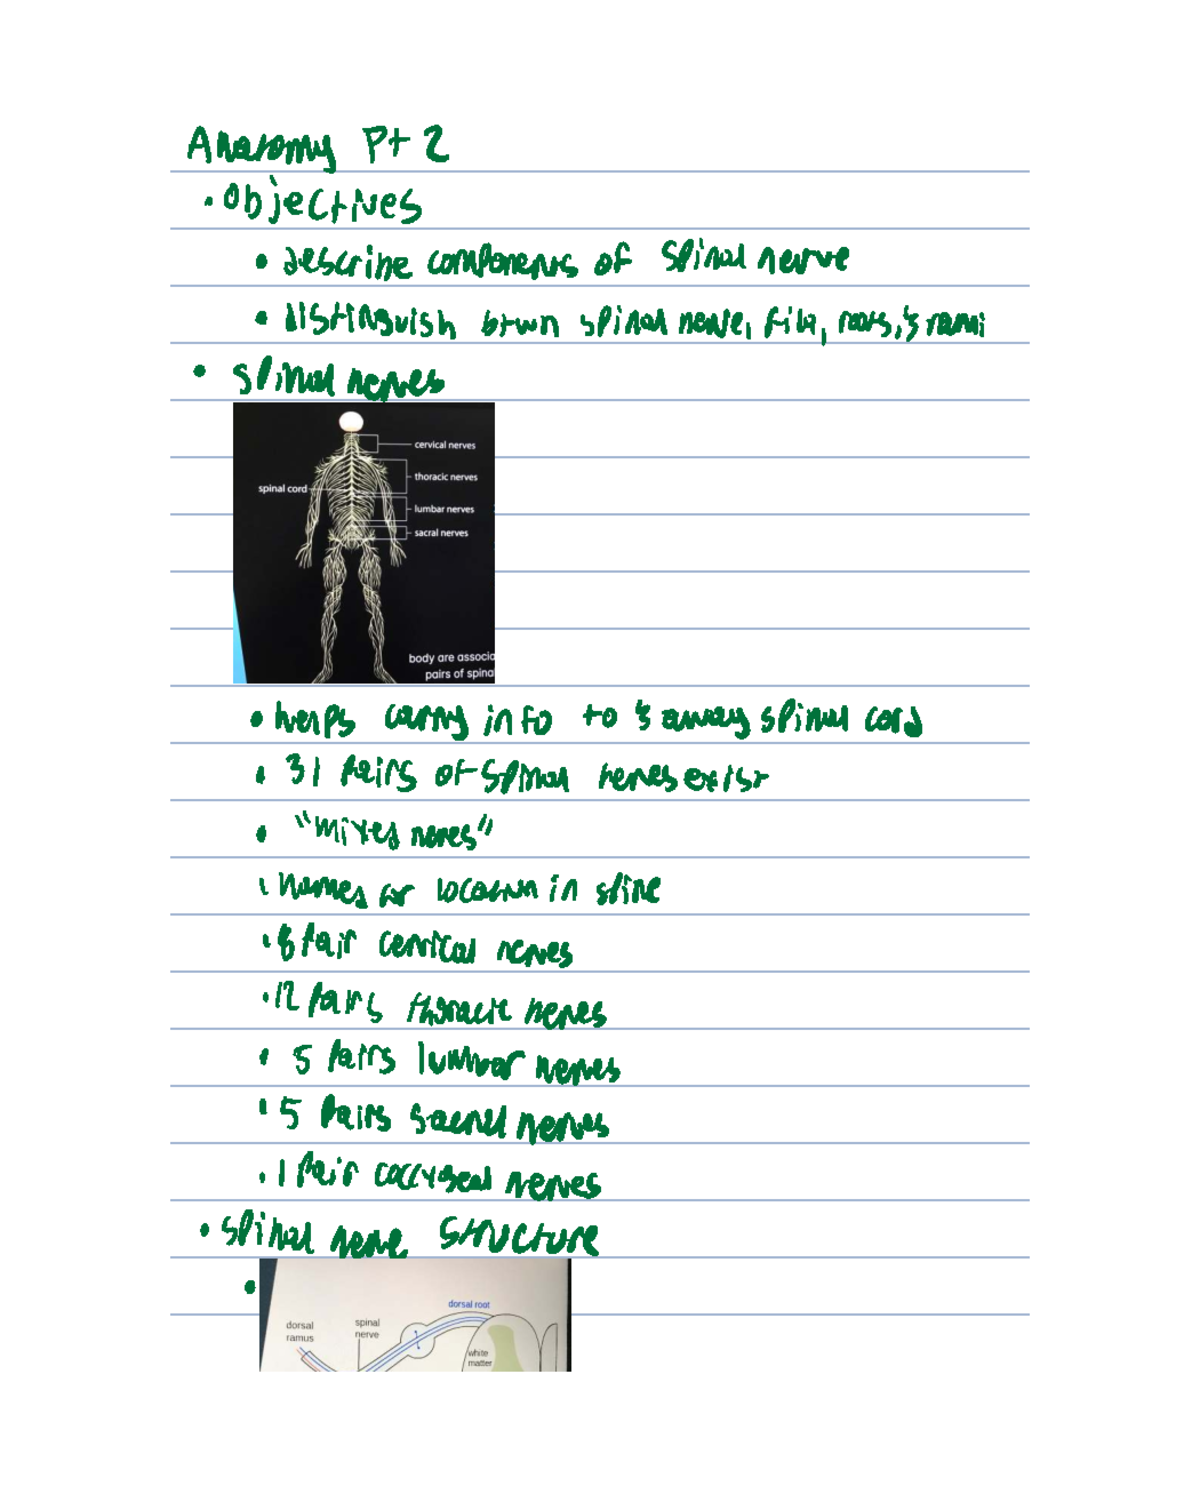 Anatomy Pt 2
• Objectives
• describe components of spinal nerve
• distinguish btwn spinal nerve, fila, roots, & rami
• spinal nerves
cervical nerves
thoracic nerves
spinal cord
lumbar nerves
sacral nerves
body are associa
pairs of spina
• helps carry info to & away spinal cord
• 31 pairs of spinal nerves exist
• "mixed nerves"
• names for location in spine
• 8 pair cervical nerves
• 12 pairs thoracic nerves
• 5 pairs lumbar nerves
• 5 pairs sacral nerves
• 1 pair coccygeal nerves
• spinal nerve structure
•
dorsal root
dorsal ramus
spinal nerve
white matter